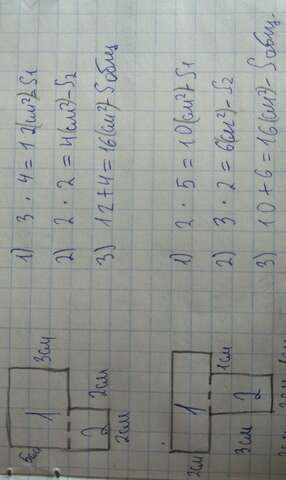 1
3см
2
2см
2см
1) 3 · 4 = 12(см²)-S1
2) 2 · 2 = 4(см²)-S2
3) 12+4=16(см²)-Sобщ
2см
1
1см
3см
2
1) 2 · 5 = 10(см²)-S1
2) 3 · 2 = 6(см²)-S2
3) 10+6=16(см²)-Sобщ.